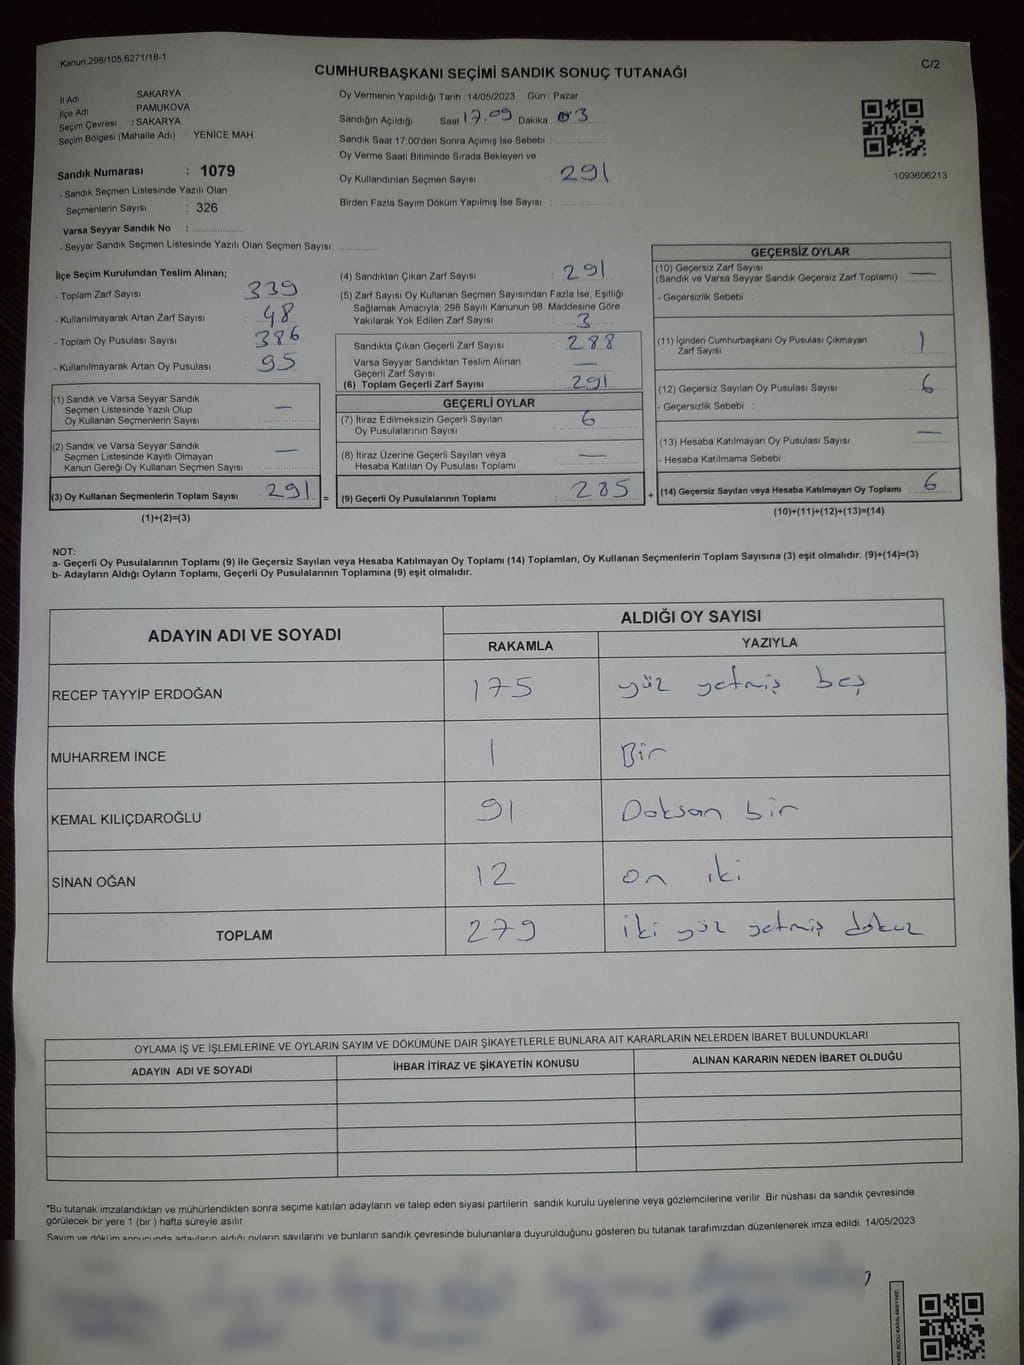 Kanun,298/105,6271/18-1
C/2
CUMHURBAŞKANI SEÇİMİ SANDIK SONUÇ TUTANAĞI
İl Adı SAKARYA
İlçe Adı PAMUKOVA
Seçim Çevresi : SAKARYA
Seçim Bölgesi (Mahalle Adı) : YENİCE MAH.
Sandık Numarası : 1079
- Sandık Seçmen Listesinde Yazılı Olan
Seçmenlerin Sayısı : 326
Varsa Seyyar Sandık No :
- Seyyar Sandık Seçmen Listesinde Yazılı Olan Seçmen Sayısı:
Oy Vermenin Yapıldığı Tarih : 14/05/2023 Gün : Pazar
Sandığın Açıldığı Saat 17.09 Dakika : 03
Sandık Saat 17:00'den Sonra Açımış İse Sebebi :
Oy Verme Saati Bitiminde Sırada Bekleyen ve
Oy Kullandırılan Seçmen Sayısı : 291
Birden Fazla Sayım Döküm Yapılmış İse Sayısı :
1093606213
İlçe Seçim Kurulundan Teslim Alınan;
- Toplam Zarf Sayısı : 339
- Kullanılmayarak Artan Zarf Sayısı : 48
- Toplam Oy Pusulası Sayısı : 386
- Kullanılmayarak Artan Oy Pusulası : 95
(1) Sandık ve Varsa Seyyar Sandık
Seçmen Listesinde Yazılı Olup
Oy Kullanan Seçmenlerin Sayısı : —
(2) Sandık ve Varsa Seyyar Sandık
Seçmen Listesinde Kayıtlı Olmayan
Kanun Gereği Oy Kullanan Seçmen Sayısı : —
(3) Oy Kullanan Seçmenlerin Toplam Sayısı : 291 =
(1)+(2)=(3)
(4) Sandıktan Çıkan Zarf Sayısı : 291
(5) Zarf Sayısı Oy Kullanan Seçmen Sayısından Fazla İse, Eşitliği
Sağlamak Amacıyla, 298 Sayılı Kanunun 98. Maddesine Göre
Yakılarak Yok Edilen Zarf Sayısı : 3
Sandıkta Çıkan Geçerli Zarf Sayısı : 288
Varsa Seyyar Sandıktan Teslim Alınan
Geçerli Zarf Sayısı : —
(6) Toplam Geçerli Zarf Sayısı : 291
GEÇERLİ OYLAR
(7) İtiraz Edilmeksizin Geçerli Sayılan
Oy Pusulalarının Sayısı : 6
(8) İtiraz Üzerine Geçerli Sayılan veya
Hesaba Katılan Oy Pusulası Toplamı : —
(9) Geçerli Oy Pusulalarının Toplamı : 285 +
GEÇERSİZ OYLAR
(10) Geçersiz Zarf Sayısı
(Sandık ve Varsa Seyyar Sandık Geçersiz Zarf Toplamı) : —
- Geçersizlik Sebebi :
(11) İçinden Cumhurbaşkanı Oy Pusulası Çıkmayan
Zarf Sayısı : 1
(12) Geçersiz Sayılan Oy Pusulası Sayısı : 6
- Geçersizlik Sebebi :
(13) Hesaba Katılmayan Oy Pusulası Sayısı : —
- Hesaba Katılmama Sebebi :
(14) Geçersiz Sayılan veya Hesaba Katılmayan Oy Toplamı : 6
(10)+(11)+(12)+(13)=(14)
NOT:
a- Geçerli Oy Pusulalarının Toplamı (9) ile Geçersiz Sayılan veya Hesaba Katılmayan Oy Toplamı (14) Toplamları, Oy Kullanan Seçmenlerin Toplam Sayısına (3) eşit olmalıdır. (9)+(14)=(3)
b- Adayların Aldığı Oyların Toplamı, Geçerli Oy Pusulalarının Toplamına (9) eşit olmalıdır.
ADAYIN ADI VE SOYADI ALDIĞI OY SAYISI
RAKAMLA YAZIYLA
RECEP TAYYİP ERDOĞAN 175 yüz yetmiş beş
MUHARREM İNCE 1 Bir
KEMAL KILIÇDAROĞLU 91 Doksan bir
SİNAN OĞAN 12 on iki
TOPLAM 279 iki yüz yetmiş dokuz
OYLAMA İŞ VE İŞLEMLERİNE VE OYLARIN SAYIM VE DÖKÜMÜNE DAİR ŞİKAYETLERLE BUNLARA AİT KARARLARIN NELERDEN İBARET BULUNDUKLARI
ADAYIN ADI VE SOYADI İHBAR İTİRAZ VE ŞİKAYETİN KONUSU ALINAN KARARIN NEDEN İBARET OLDUĞU
*Bu tutanak imzalandıktan ve mühürlendikten sonra seçime katılan adayların ve talep eden siyasi partilerin sandık kurulu üyelerine veya gözlemcilerine verilir. Bir nüshası da sandık çevresinde
görülecek bir yere 1 (bir ) hafta süreyle asılır.
Sayım ve döküm sonucunda adayların aldığı oyların sayılarını ve bunların sandık çevresinde bulunanlara duyurulduğunu gösteren bu tutanak tarafımızdan düzenlenerek imza edildi. 14/05/2023